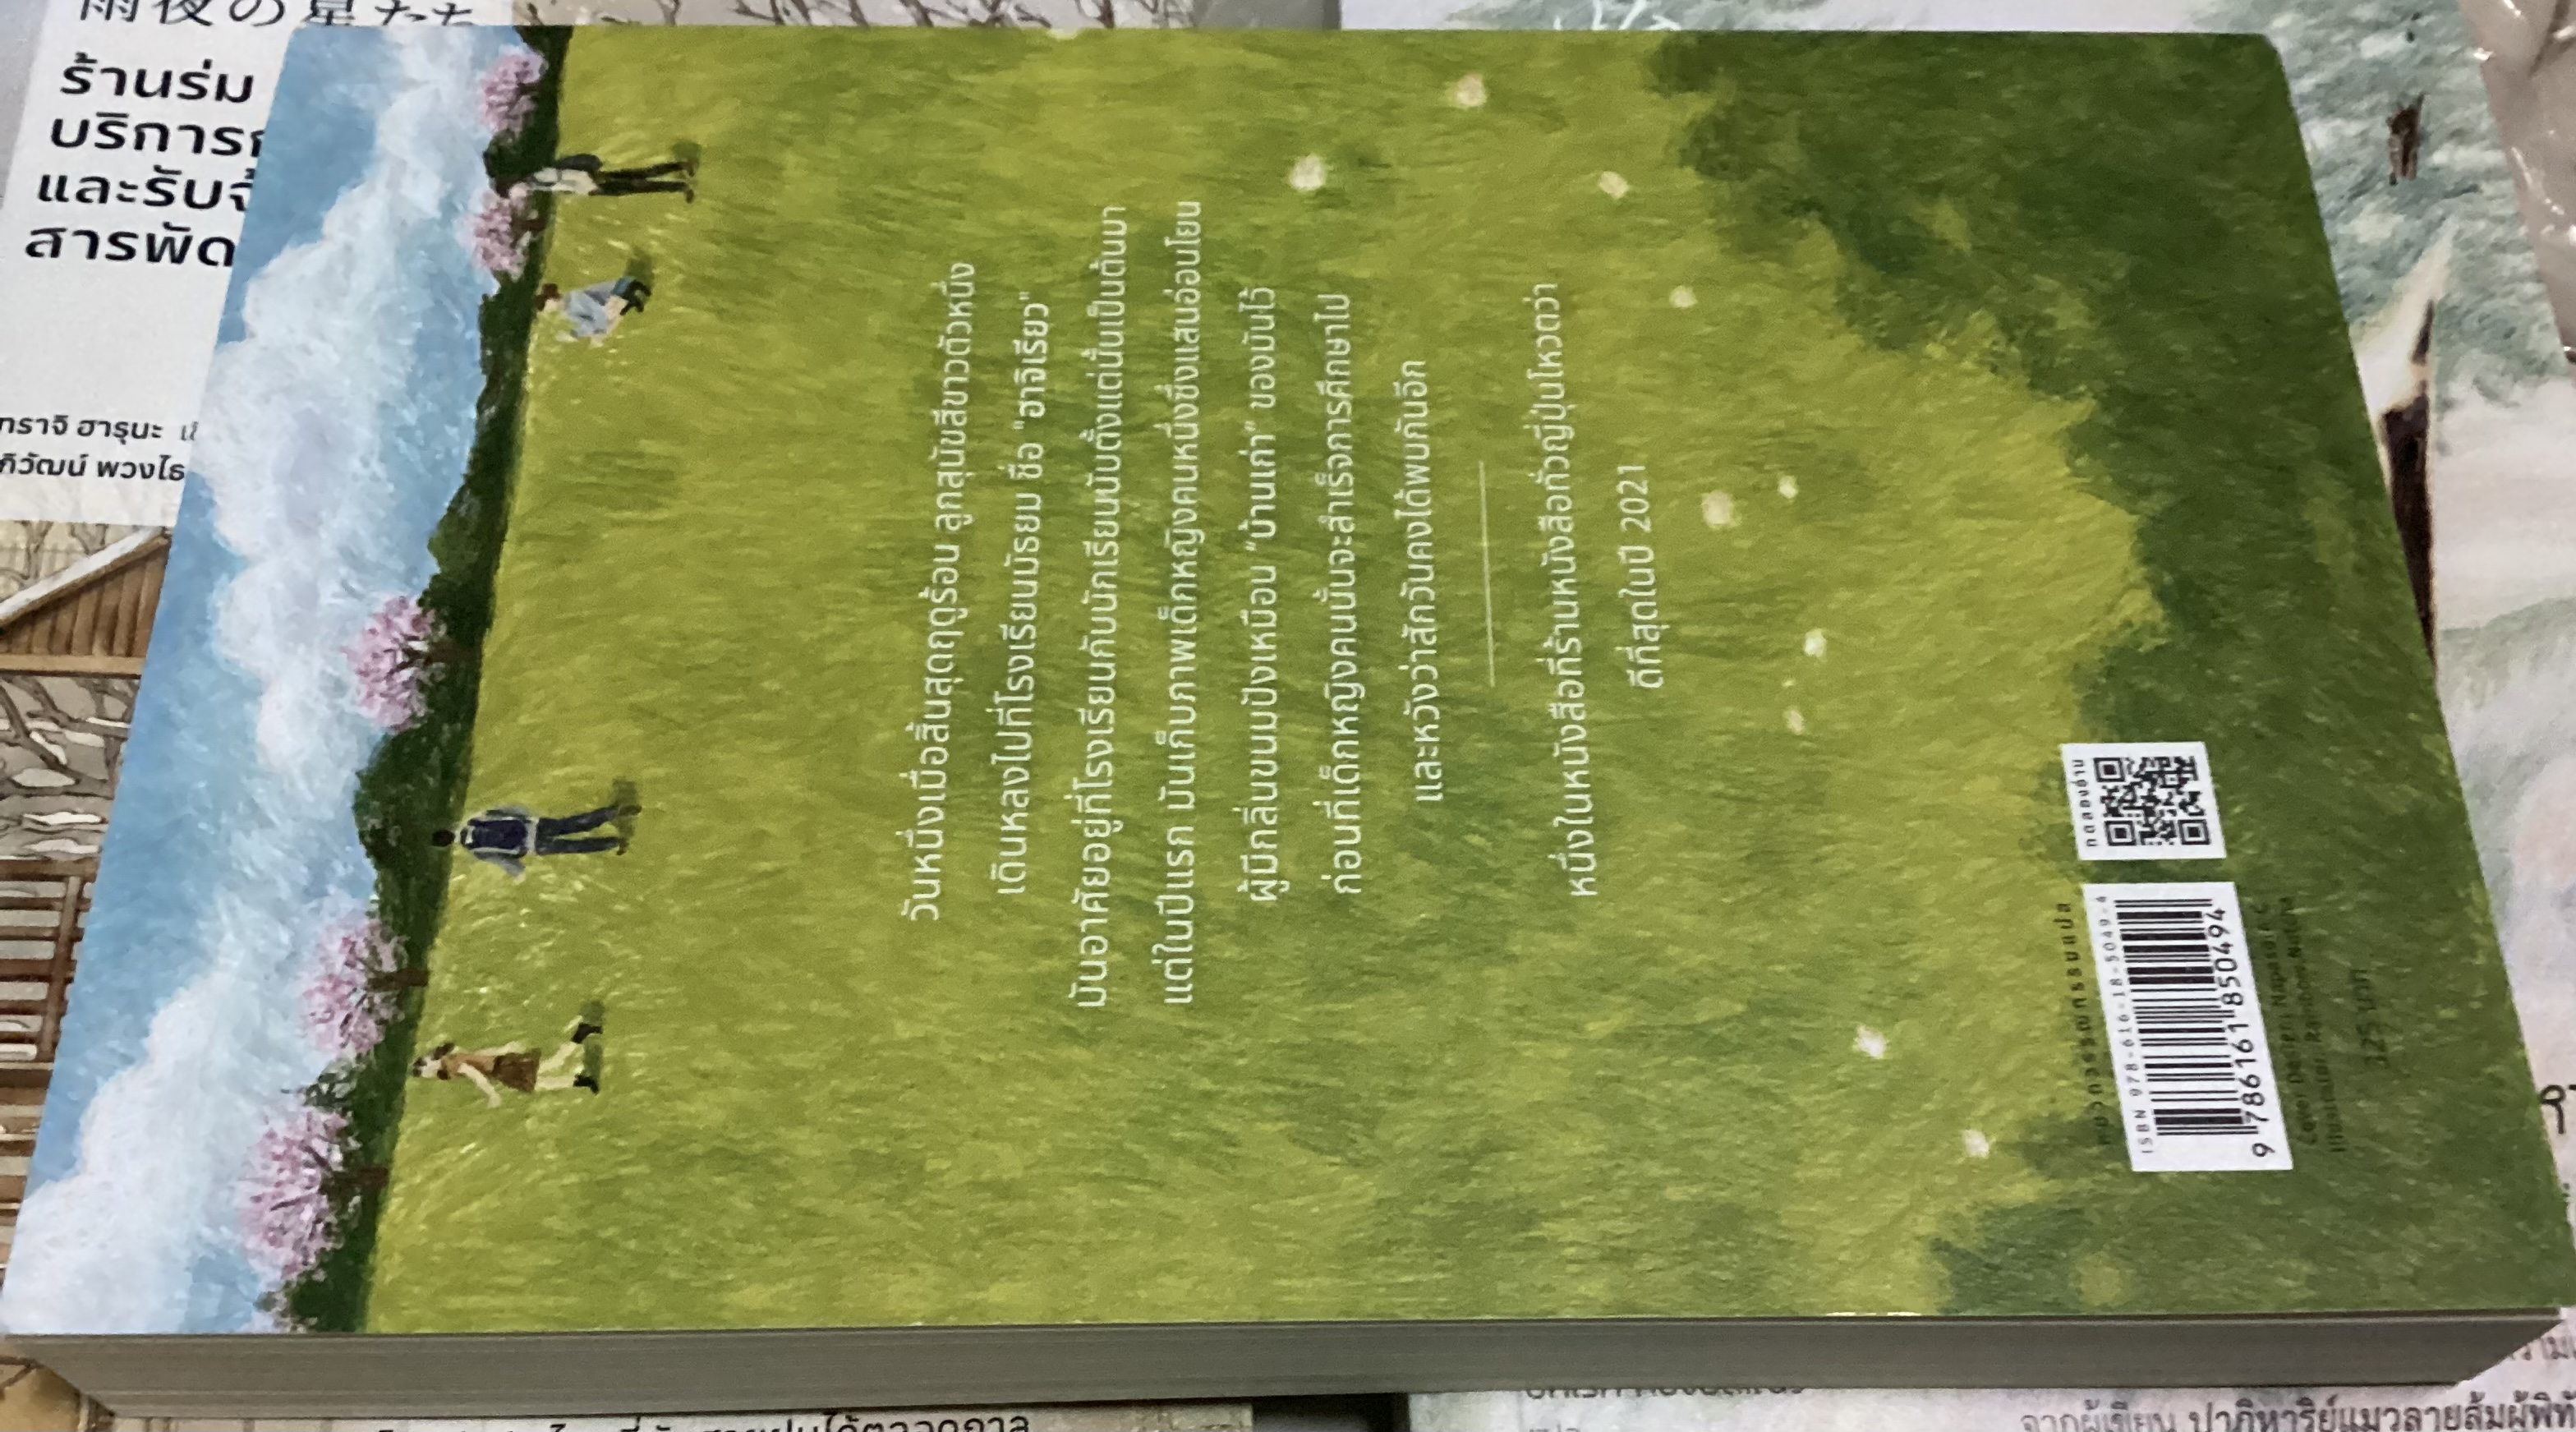 วันหนึ่งเมื่อสิ้นสุดฤดูร้อน ลูกสุนัขสีขาวตัวหนึ่ง
เดินหลงไปที่โรงเรียนมัธยม ชื่อ "ฮาจิเรียว"
มันอาศัยอยู่ที่โรงเรียนกับนักเรียนนับตั้งแต่นั้นเป็นต้นมา
แต่ในปีแรก มันเก็บภาพเด็กหญิงคนหนึ่งซึ่งแสนอ่อนโยน
ผู้มีกลิ่นขนมปังเหมือน "บ้านเก่า" ของมันไว้
ก่อนที่เด็กหญิงคนนั้นจะสำเร็จการศึกษาไป
และหวังว่าสักวันคงได้พบกันอีก
หนึ่งในหนังสือที่ร้านหนังสือทั่วญี่ปุ่นโหวตว่า
ดีที่สุดในปี 2021
หมวดวรรณกรรมแปล
ISBN 978-616-18-5049-4
9 786161 850494
ทดลองอ่าน
Cover Design Napasslet C
Illustrator Rainbow Nutcha
325 บาท
雨夜の星たち
ร้านร่ม
บริการ
และรับจ้
สารพัด
ทราจิ ฮารุนะ
ภิวัฒน์ พวงไธ
จากผู้เขียน ปาฏิหาริย์แมวลายส้มผู้พิทั